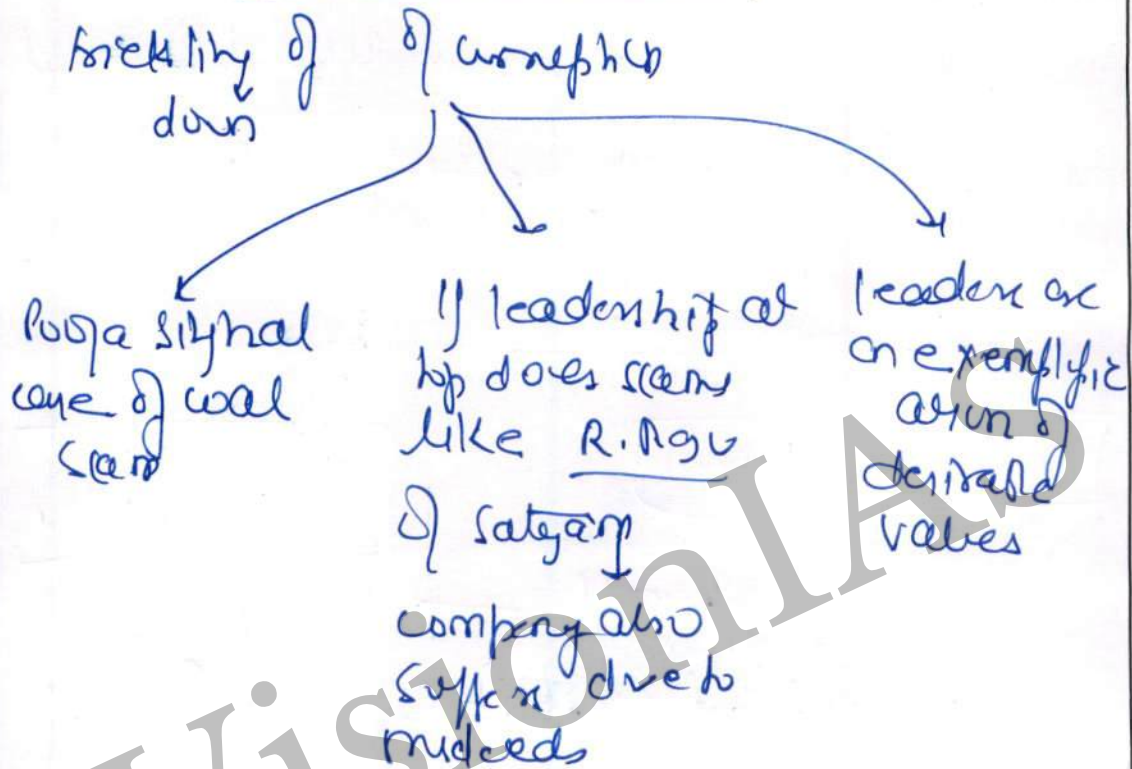 trickling of of corruption
down
Pooja Signhal
case of coal
scam
If leadership at
top does scams
like R. Raju
of satyam
company also
suffers due to
misdeeds
leaders are
an exemplific
ation of
desirable
values
VisionIAS